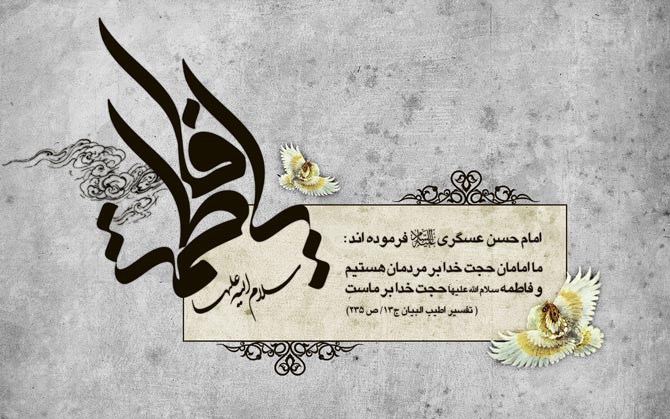 یا فاطمة
سلام الله علیها
امام حسن عسگری علیه‌السلام فرموده اند :
ما امامان حجت خدا بر مردمان هستیم
و فاطمه سلام الله علیها حجت خدا بر ماست
( تفسیر اطیب البیان ج۱۳/ ص ۲۳۵)